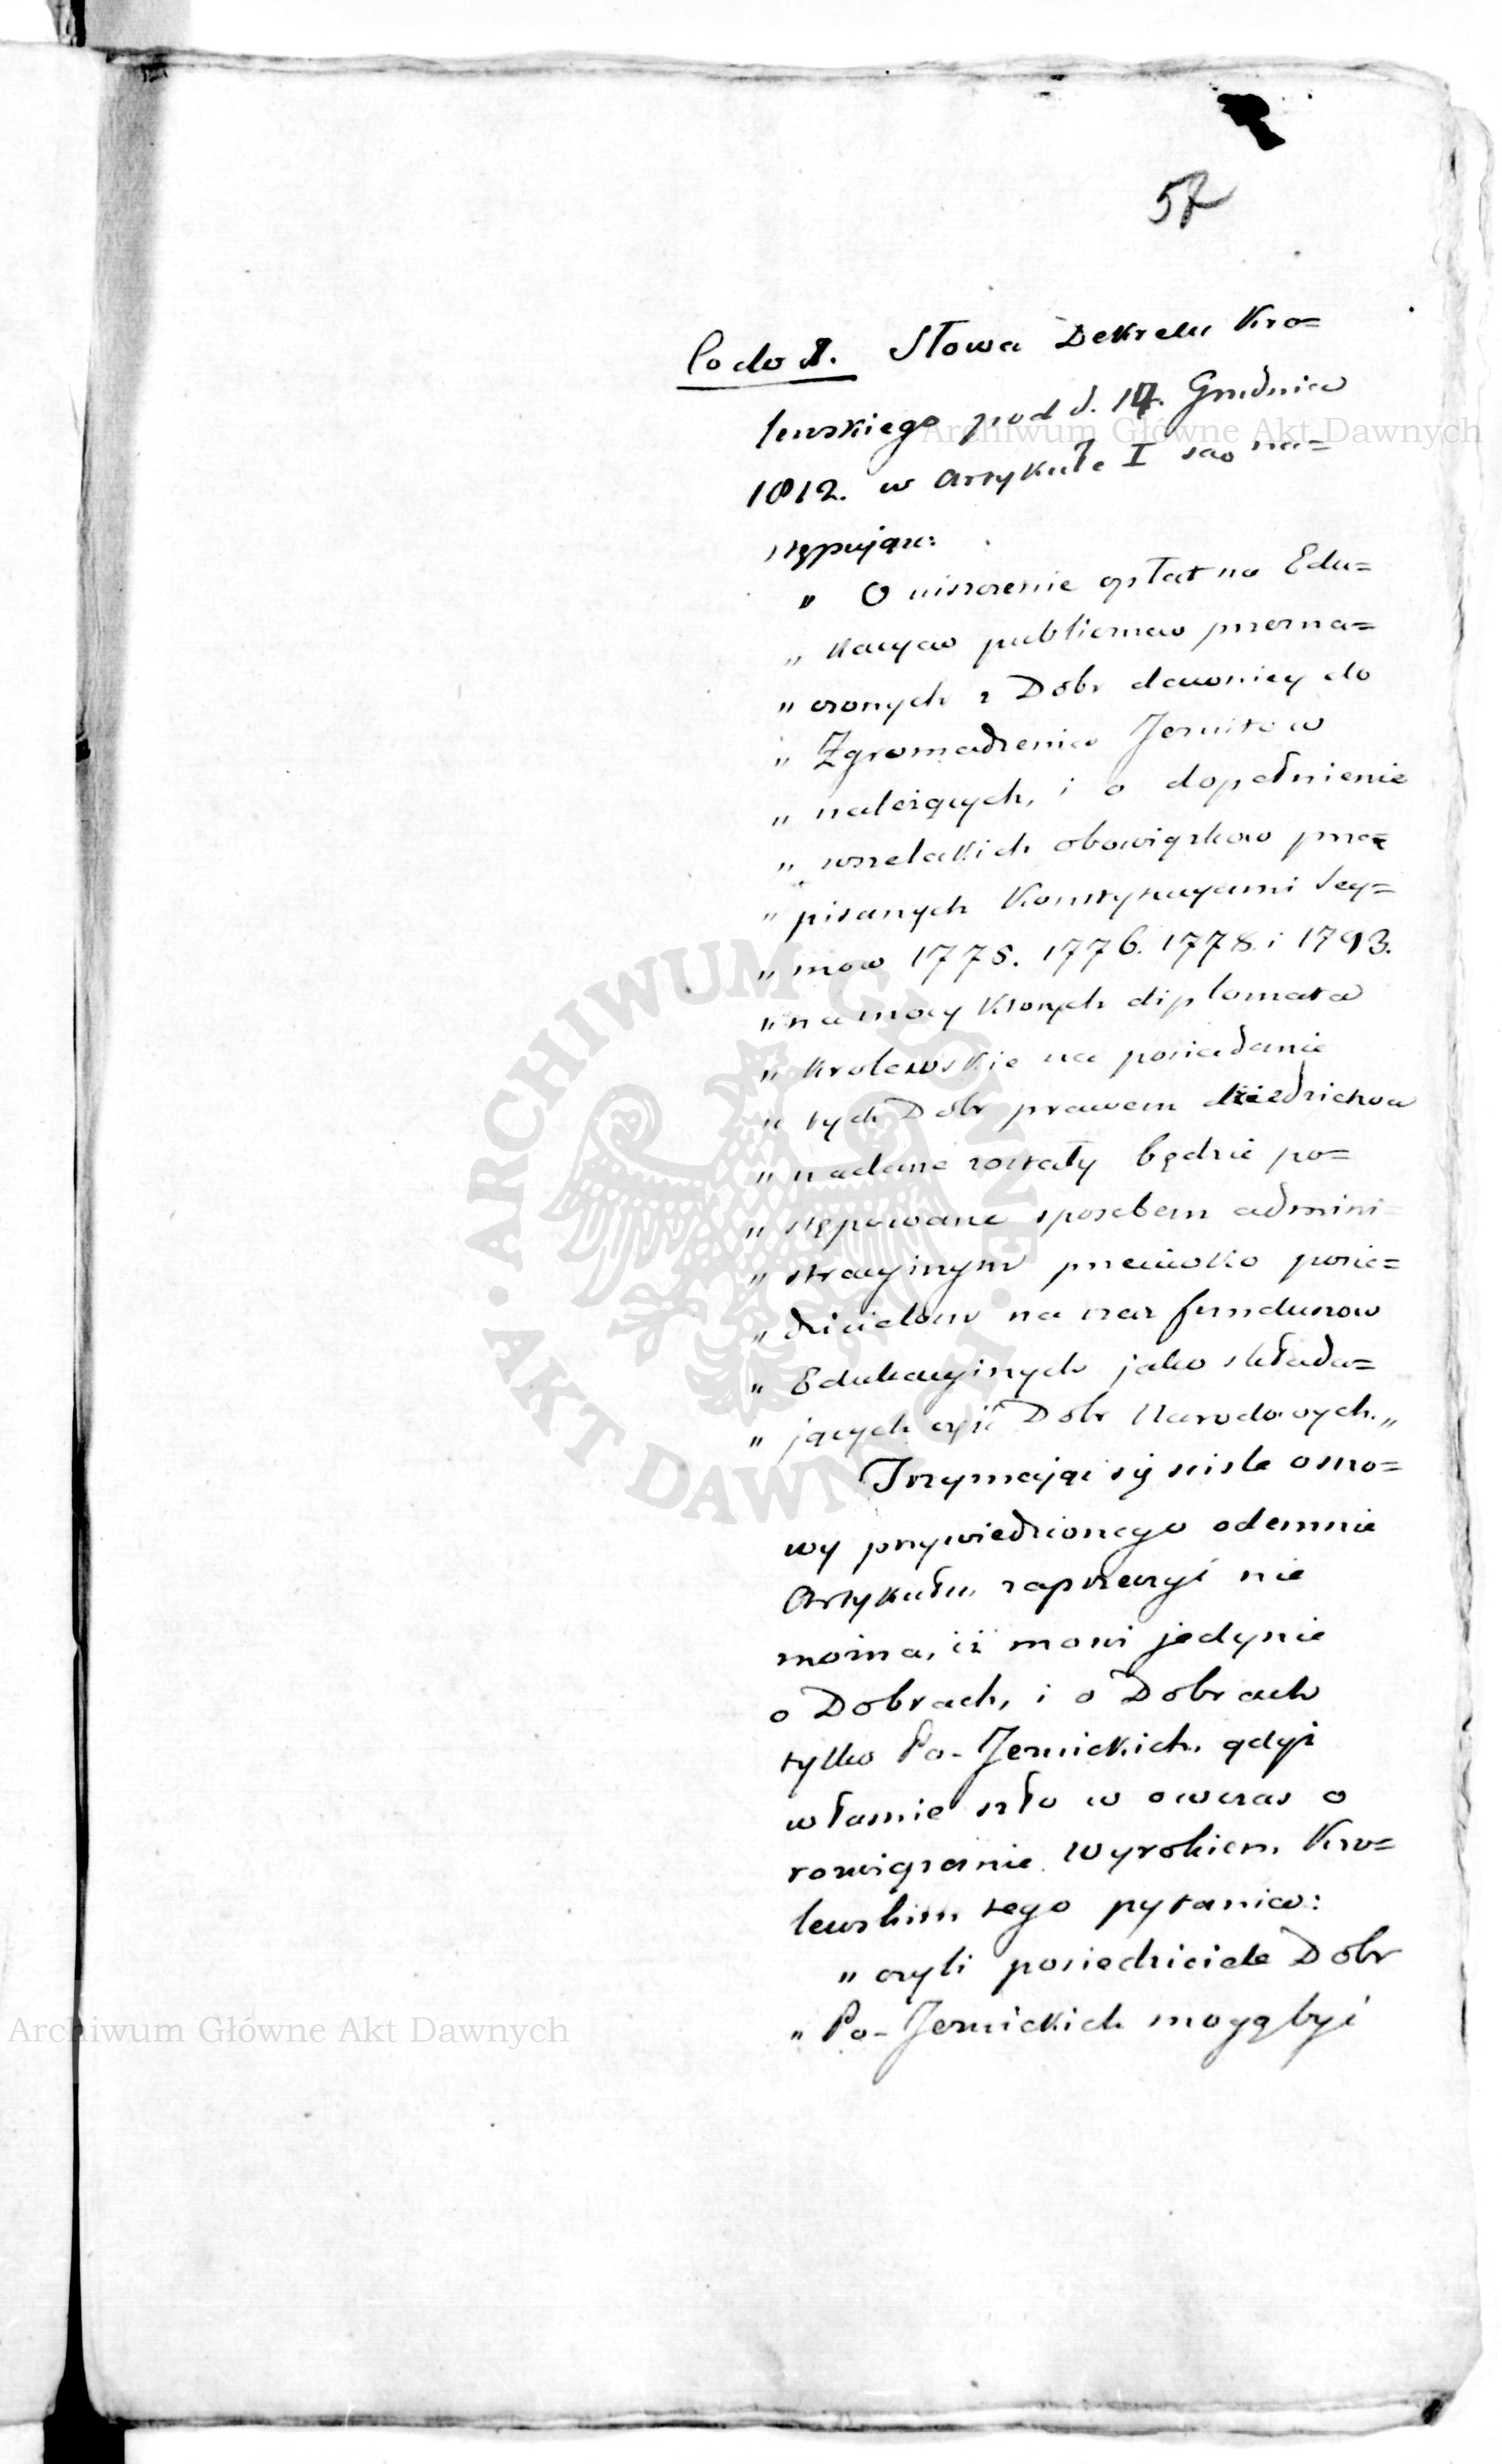 57
Co do 1. Słowa Dekretu Kro=
lewskiego pod d. 17. Grudnia
1812. w Artykule I są na=
stępujące:
„ O uiszczenie opłat na Edu=
„ kacyą publiczną przezna=
„ czonych z Dobr dawniey do
„ Zgromadzenia Jezuitow
„ należących, i o dopełnienie
„ wszelakich obowiązkow prze=
„ pisanych Konstytucyami Sey=
„ mow 1775. 1776. 1778. i 1793.
„ na mocy ktorych diplomata
„ Krolewskie na posiadanie
„ tych Dobr prawem dziedzictwa
„ nadane zostały będzie po=
„ stępowane sposobem admini=
„ stracyinym przeciwko posie=
„ dzicielom na rzecz funduszow
„ Edukacyinych jako składa=
„ jących część Dobr Narodowych.„
Trzymając się sciśle osno=
wy przywiedzionego odemnie
Artykułu, zaprzeczyć nie
można, iż mowi jedynie
o Dobrach, i o Dobrach
tylko Po-Jezuickich, gdyż
własnie szło w owczas o
rozwiązanie Wyrokiem Kro=
lewskim tego pytania:
„ czyli posiedziciele Dobr
„ Po-Jezuickich mogą być
Archiwum Główne Akt Dawnych
Archiwum Główne Akt Dawnych
ARCHIWUM GŁÓWNE · AKT DAWNYCH ·